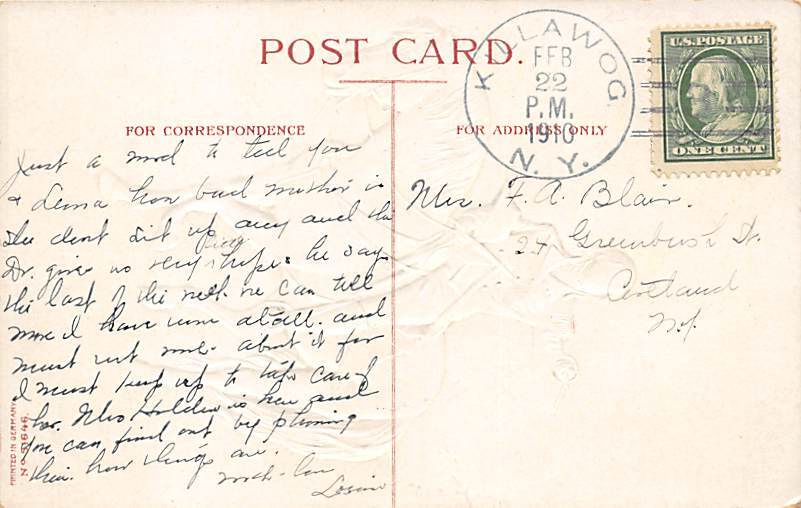 POST CARD.
KILLAWOG
FEB
22
P.M.
1910
N. Y.
U.S. POSTAGE
ONE CENT
FOR CORRESPONDENCE
FOR ADDRESS ONLY
Just a word to tell you
& Lena how bad mother is
She dont sit up any and the
Dr. gives no very hope he says
the last of the week we can tell
more I have been about and
must not about it for
I must keep up to take care of
her. Mrs Holden is here and
you can find out by phoning
them. how things are.
with love
Mrs. F. A. Blair.
24 Greenbush St.
Cortland
N.Y.
PRINTED IN GERMANY
No 51646